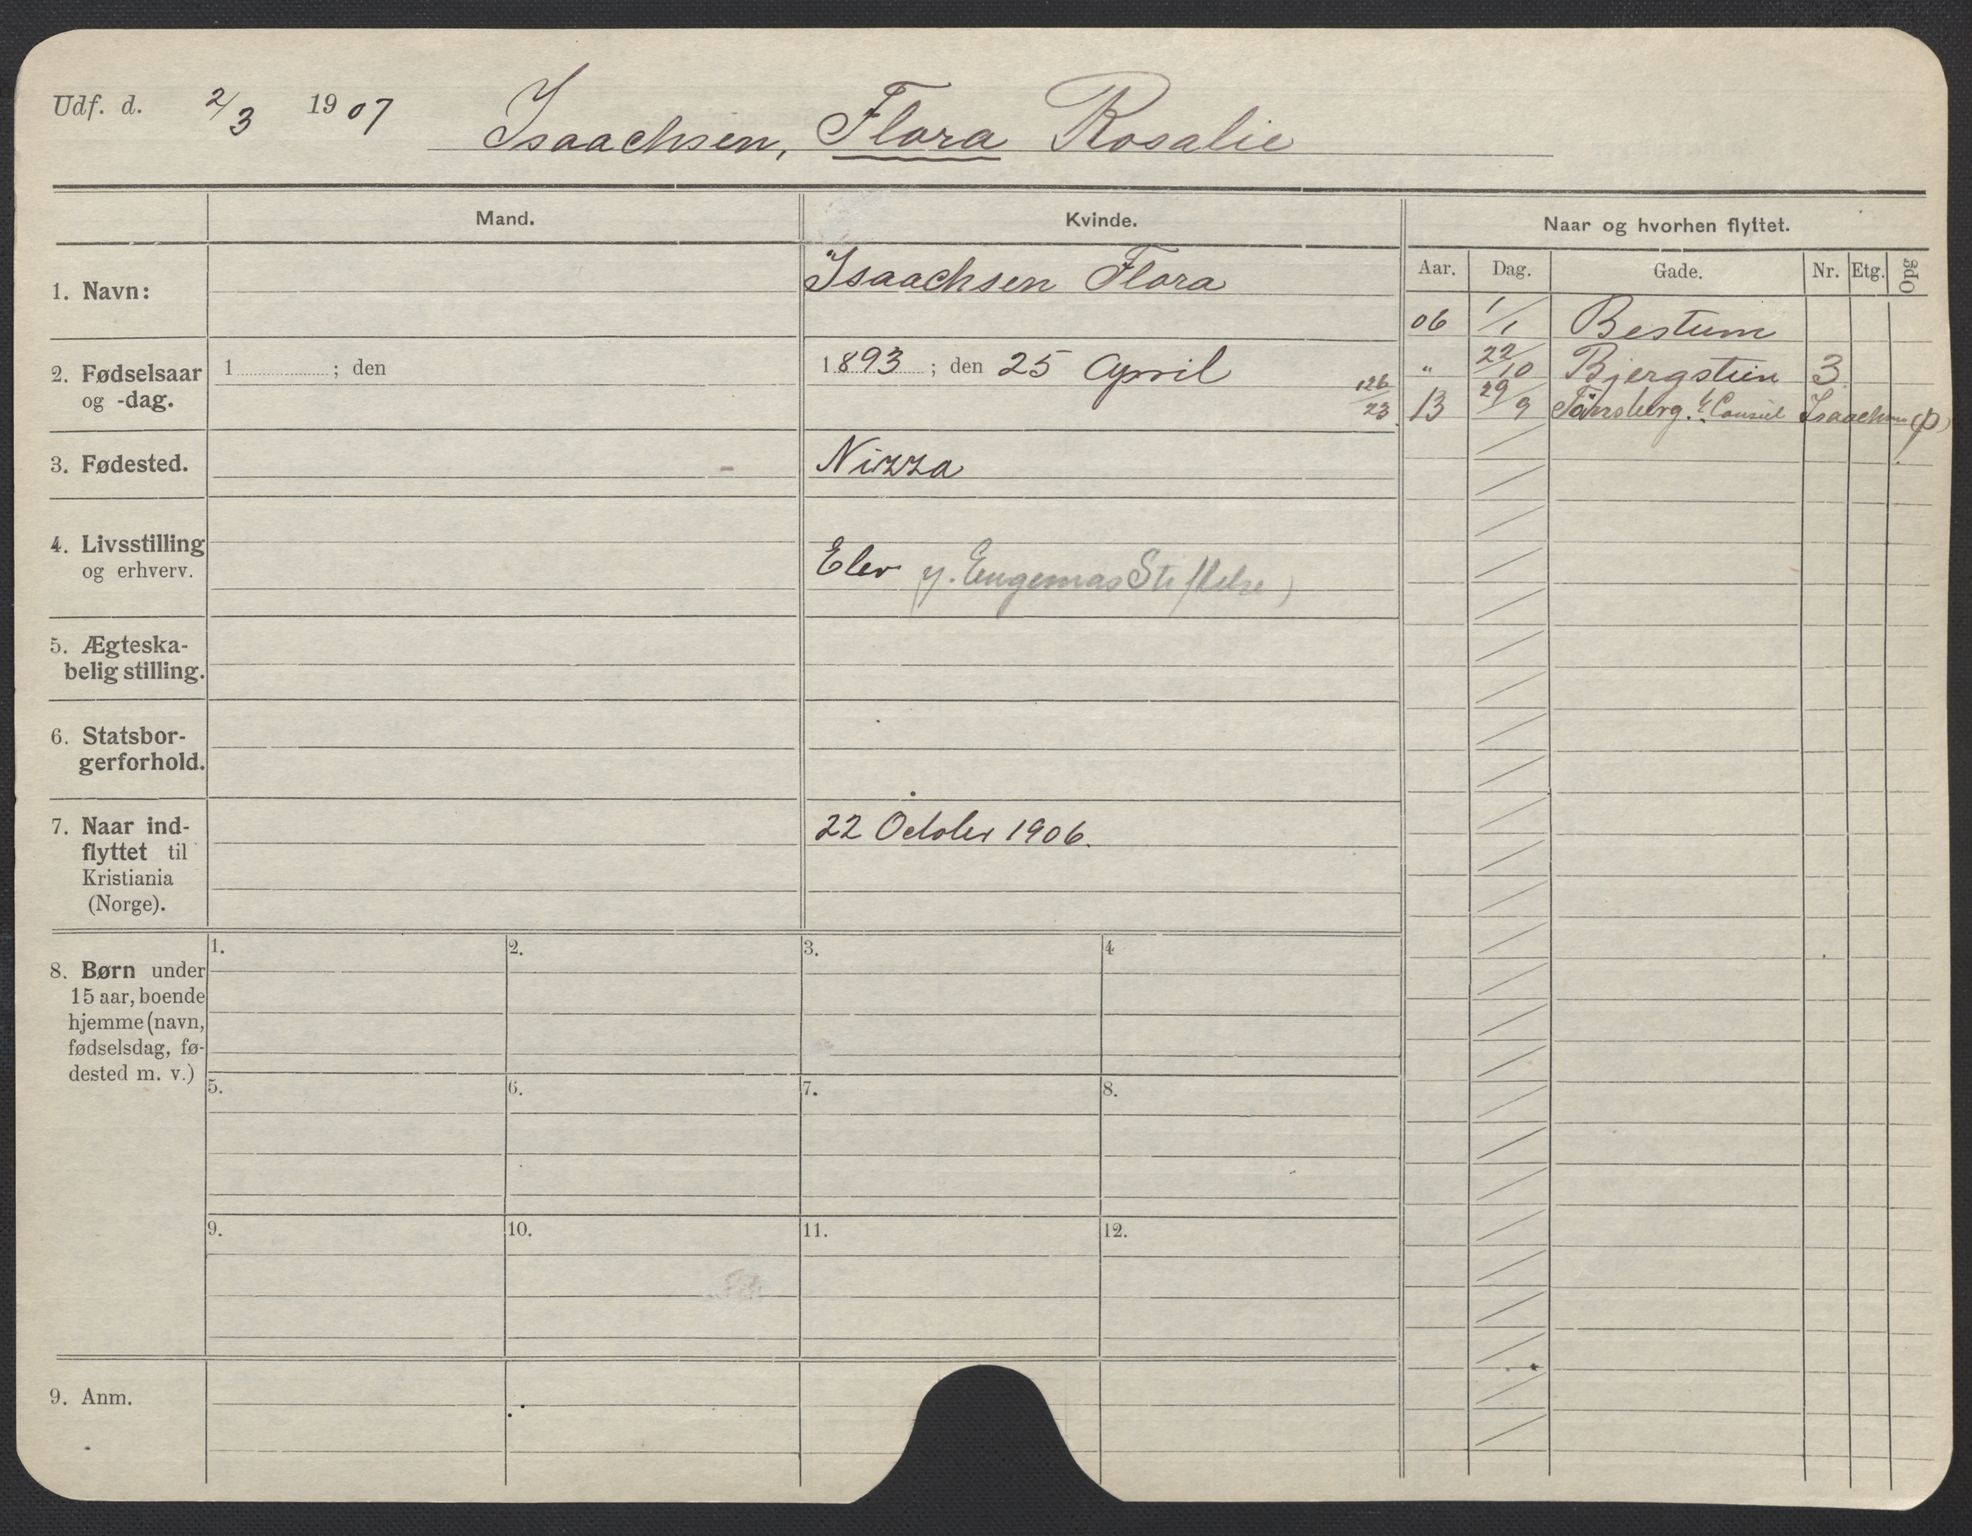 Udf. d. 2/3 1907 Isaachsen, Flora Rosalie
Mand. Kvinde. Naar og hvorhen flyttet.
Aar. Dag. Gade. Nr. Etg. Opg
1. Navn: Isaachsen Flora
06 1/1 Bestum
2. Fødselsaar og -dag. 1 ; den 1893 ; den 25 April
" 22/10 Bjergstien 3
126/23 13 29/9 Tönsberg. Consul Isaachsen (p)
3. Fødested. Nizza
4. Livsstilling og erhverv. Elev Stiftelse)
5. Ægteska-
belig stilling.
6. Statsbor-
gerforhold.
7. Naar ind-
flyttet til
Kristiania
(Norge).
22 October 1906.
8. Børn under
15 aar, boende
hjemme (navn,
fødselsdag, fø-
dested m. v.)
1. 2. 3. 4
5. 6. 7. 8.
9. 10. 11. 12.
9. Anm.